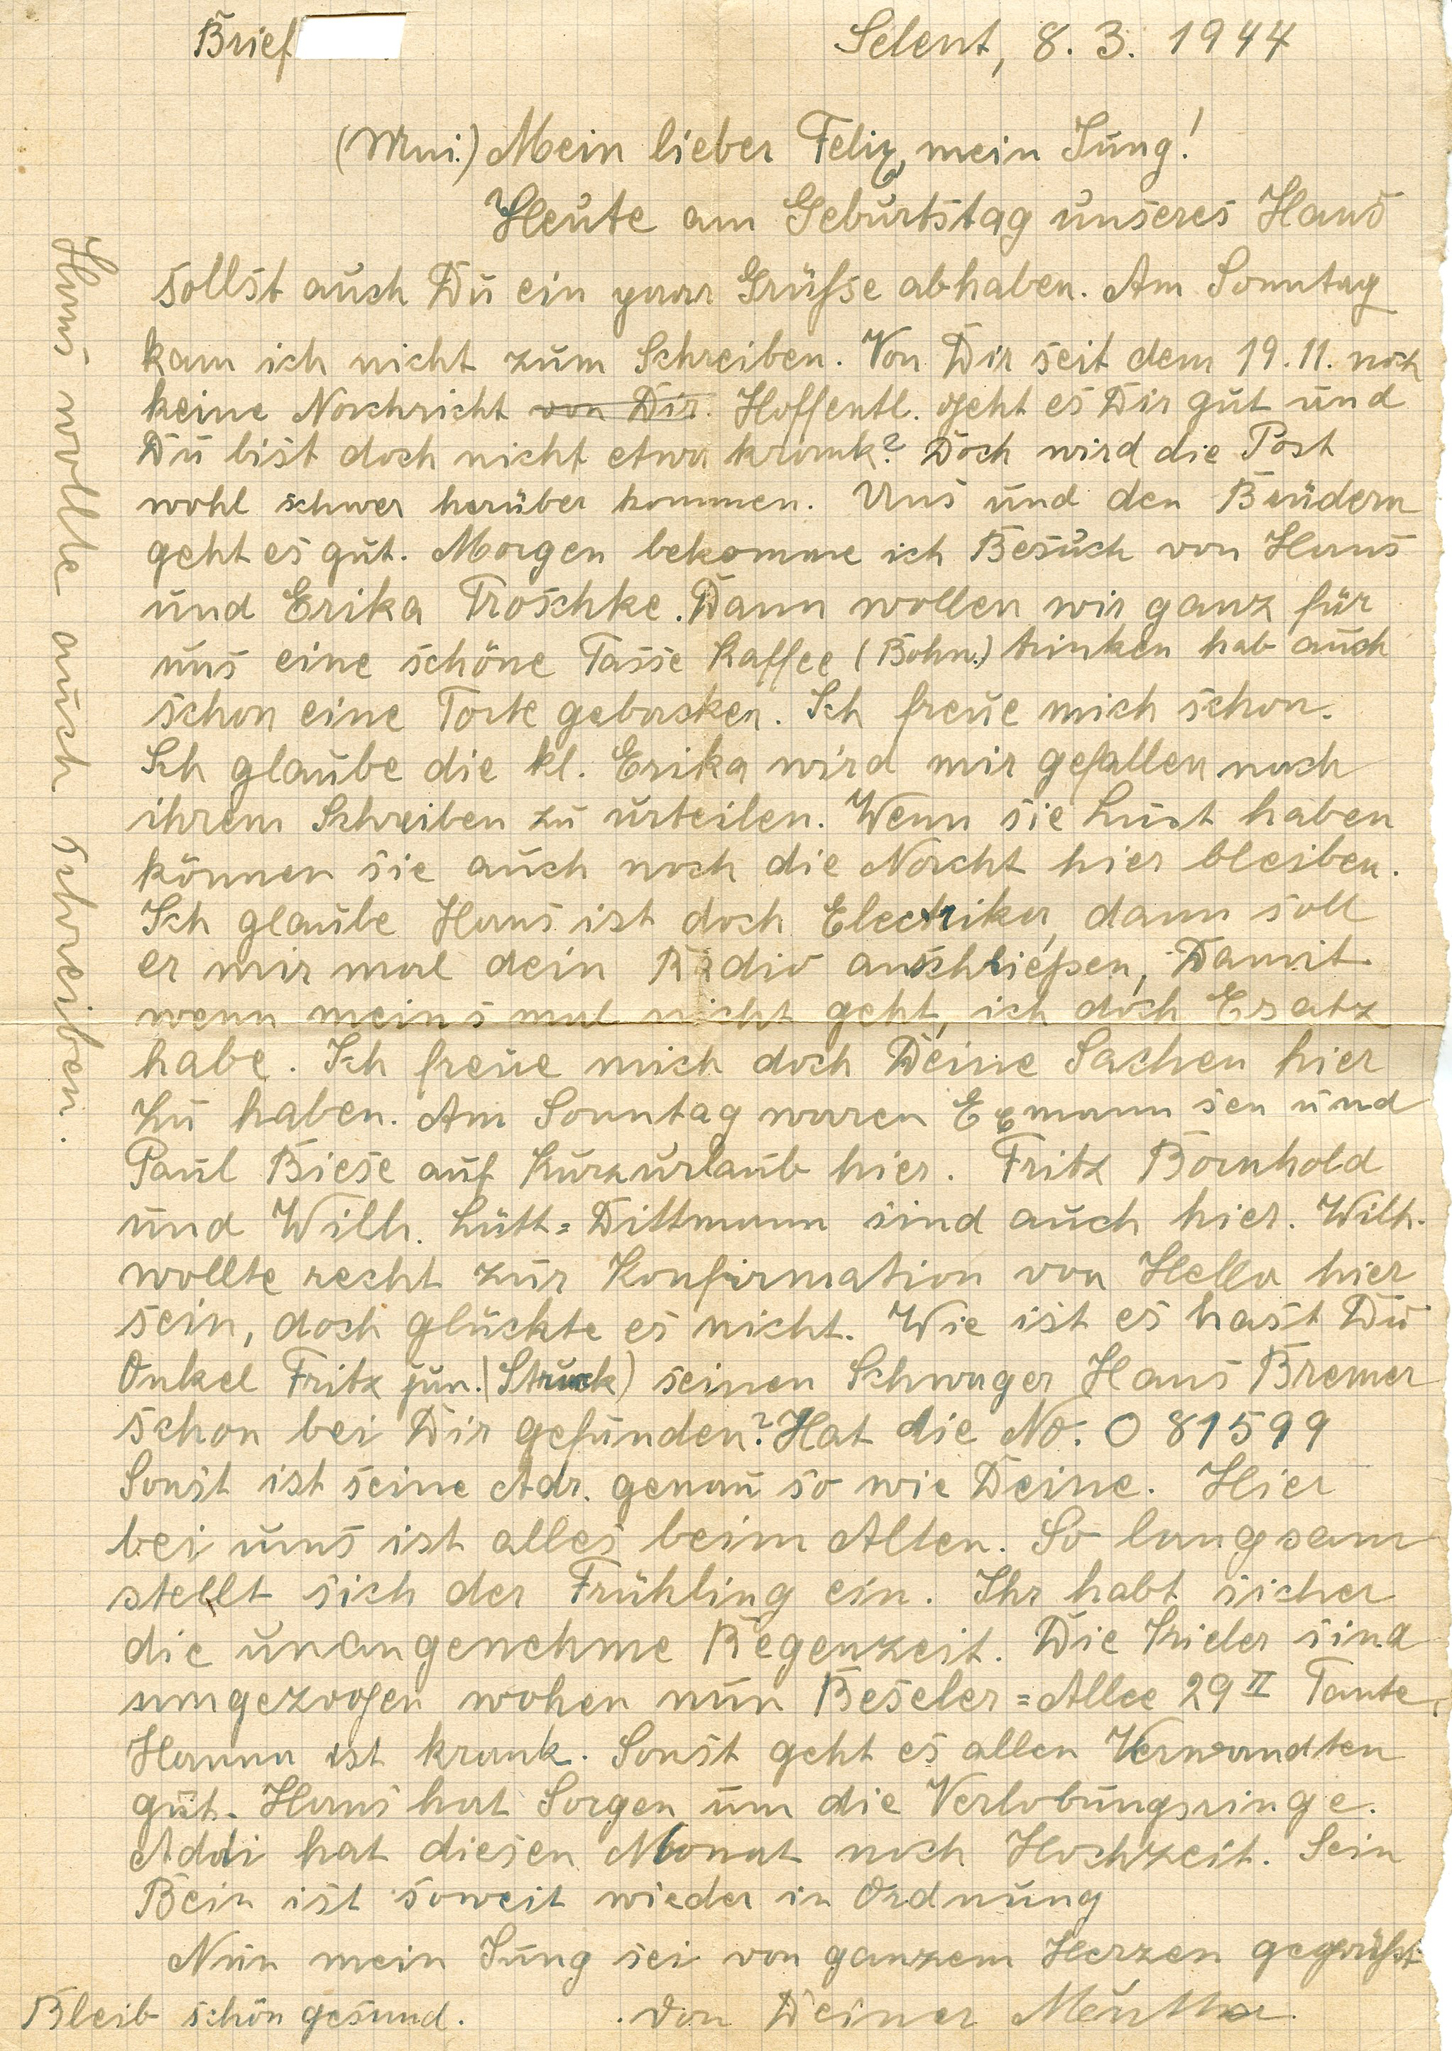 Brief
Selent, 8. 3. 1944
(Mui.) Mein lieber Felix, mein Jung!
Heute am Geburtstag unseres Hans
sollst auch Du ein paar Grüße abhaben. Am Sonntag
kam ich nicht zum Schreiben. Von Dir seit dem 19.11. noch
keine Nachricht von Dir. Hoffentl. geht es Dir gut und
Du bist doch nicht etwa krank? Doch wird die Post
wohl schwer herüber kommen. Uns und den Brüdern
geht es gut. Morgen bekomme ich Besuch von Hans
und Erika Troschke. Dann wollen wir ganz für
uns eine schöne Tasse Kaffee (Bohn.) trinken hab auch
schon eine Torte gebacken. Ich freue mich schon.
Ich glaube die kl. Erika wird mir gefallen nach
ihrem Schreiben zu urteilen. Wenn sie Lust haben
können sie auch noch die Nacht hier bleiben.
Ich glaube Hans ist doch Elektriker, dann soll
er mir mal dein Radio anschließen, Damit
wenn meins mal nicht geht, ich doch Ersatz
habe. Ich freue mich doch Deine Sachen hier
zu haben. Am Sonntag waren sen und
Paul Biese auf Kurzurlaub hier. Fritz Bornhold
und Wilh. Lütt=Dittmann sind auch hier. Wilh.
wollte recht zur Konfirmation von Hella hier
sein, doch glückte es nicht. Wie ist es hast Du
Onkel Fritz jun. (Struck) seinen Schwager Hans Bremer
schon bei Dir gefunden? Hat die No. 0 81599
Sonst ist seine Adr. genau so wie Deine. Hier
bei uns ist alles beim Alten. So langsam
stellt sich der Frühling ein. Ihr habt sicher
die unangenehme Regenzeit. Die Kieler sind
umgezogen wohen nun Beseler=Allee 29 II Tante
Hanna ist krank. Sonst geht es allen Verwandten
gut. Hans hat Sorgen um die Verlobungsringe.
Addi hat diesen Monat noch Hochzeit. Sein
Bein ist soweit wieder in Ordnung
Nun mein Jung sei von ganzem Herzen gegrüßt
Bleib schön gesund. von Deiner Mutter
Hans wollte auch schreiben.